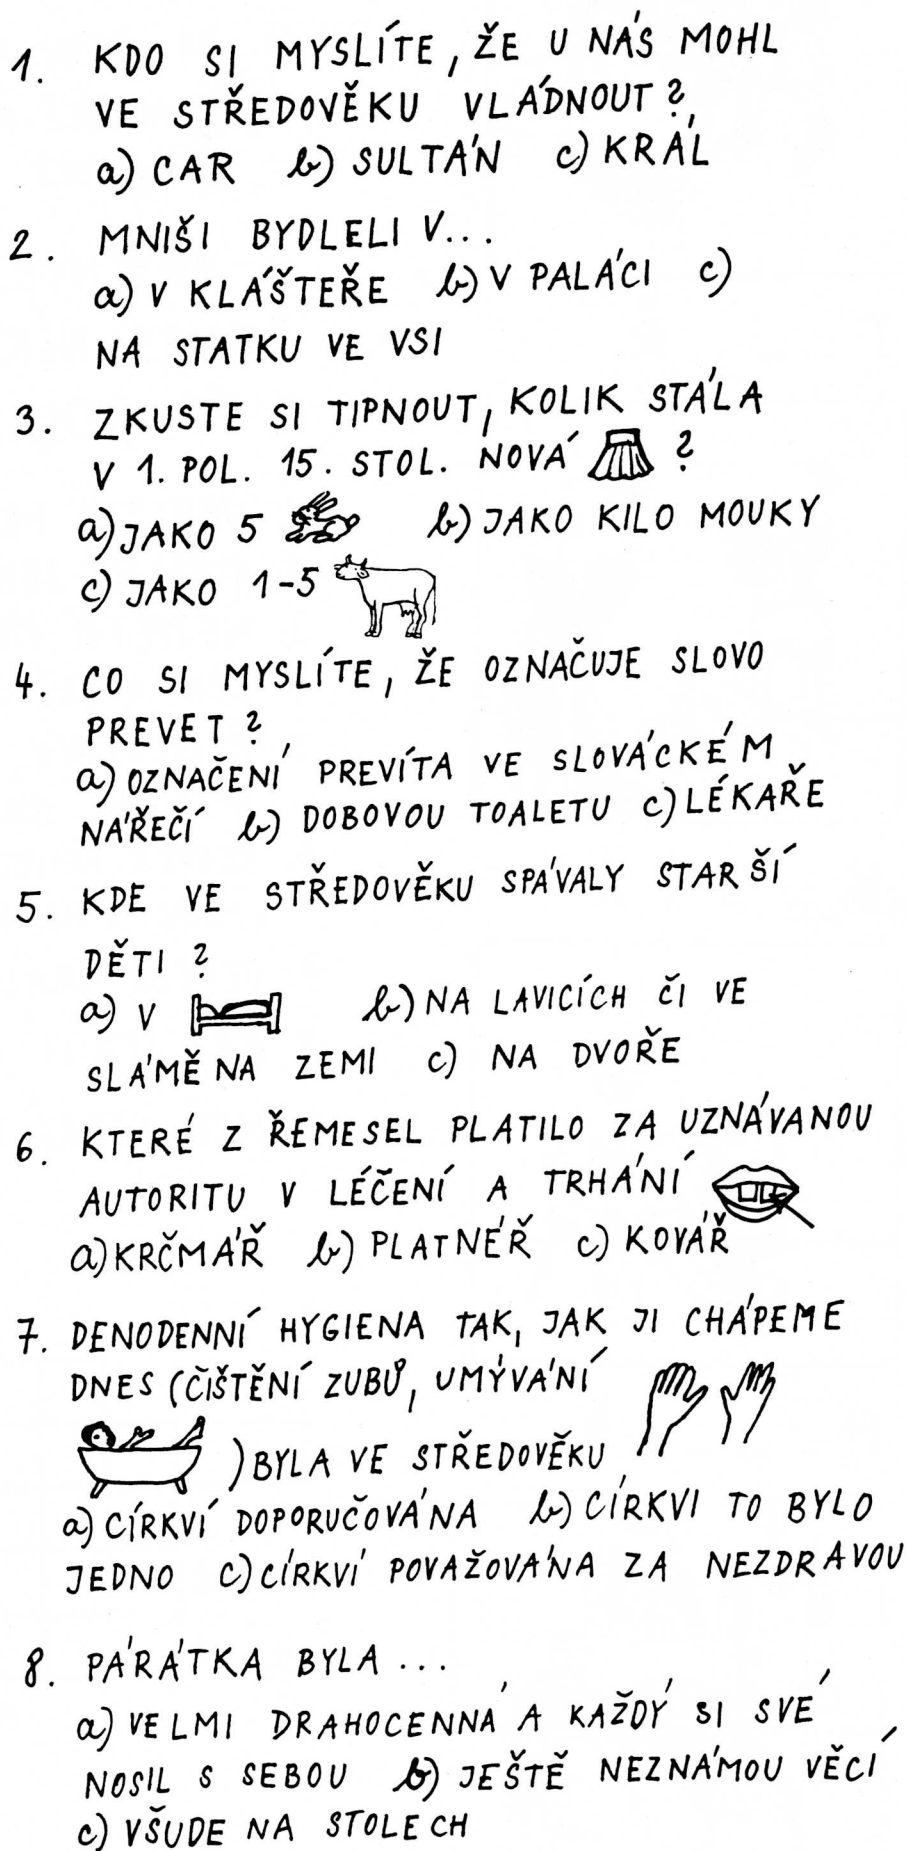 1. KDO SI MYSLÍTE, ŽE U NÁS MOHL
VE STŘEDOVĚKU VLÁDNOUT?
a) CAR b) SULTÁN c) KRÁL
2. MNIŠI BYDLELI V...
a) V KLÁŠTEŘE b) V PALÁCI c)
NA STATKU VE VSI
3. ZKUSTE SI TIPNOUT, KOLIK STÁLA
V 1. POL. 15. STOL. NOVÁ ?
a) JAKO 5 b) JAKO KILO MOUKY
c) JAKO 1-5
4. CO SI MYSLÍTE, ŽE OZNAČUJE SLOVO
PREVET?
a) OZNAČENÍ PREVÍTA VE SLOVÁCKÉM
NÁŘEČÍ b) DOBOVOU TOALETU c) LÉKAŘE
5. KDE VE STŘEDOVĚKU SPÁVALY STARŠÍ
DĚTI?
a) V b) NA LAVICÍCH ČI VE
SLÁMĚ NA ZEMI c) NA DVOŘE
6. KTERÉ Z ŘEMESEL PLATILO ZA UZNÁVANOU
AUTORITU V LÉČENÍ A TRHÁNÍ
a) KRČMÁŘ b) PLATNÉŘ c) KOVÁŘ
7. DENODENNÍ HYGIENA TAK, JAK JI CHÁPEME
DNES (ČIŠTĚNÍ ZUBŮ, UMÝVÁNÍ
) BYLA VE STŘEDOVĚKU
a) CÍRKVÍ DOPORUČOVÁNA b) CÍRKVI TO BYLO
JEDNO c) CÍRKVÍ POVAŽOVÁNA ZA NEZDRAVOU
8. PÁRÁTKA BYLA...
a) VELMI DRAHOCENNÁ A KAŽDÝ SI SVÉ
NOSIL S SEBOU b) JEŠTĚ NEZNÁMOU VĚCÍ
c) VŠUDE NA STOLECH